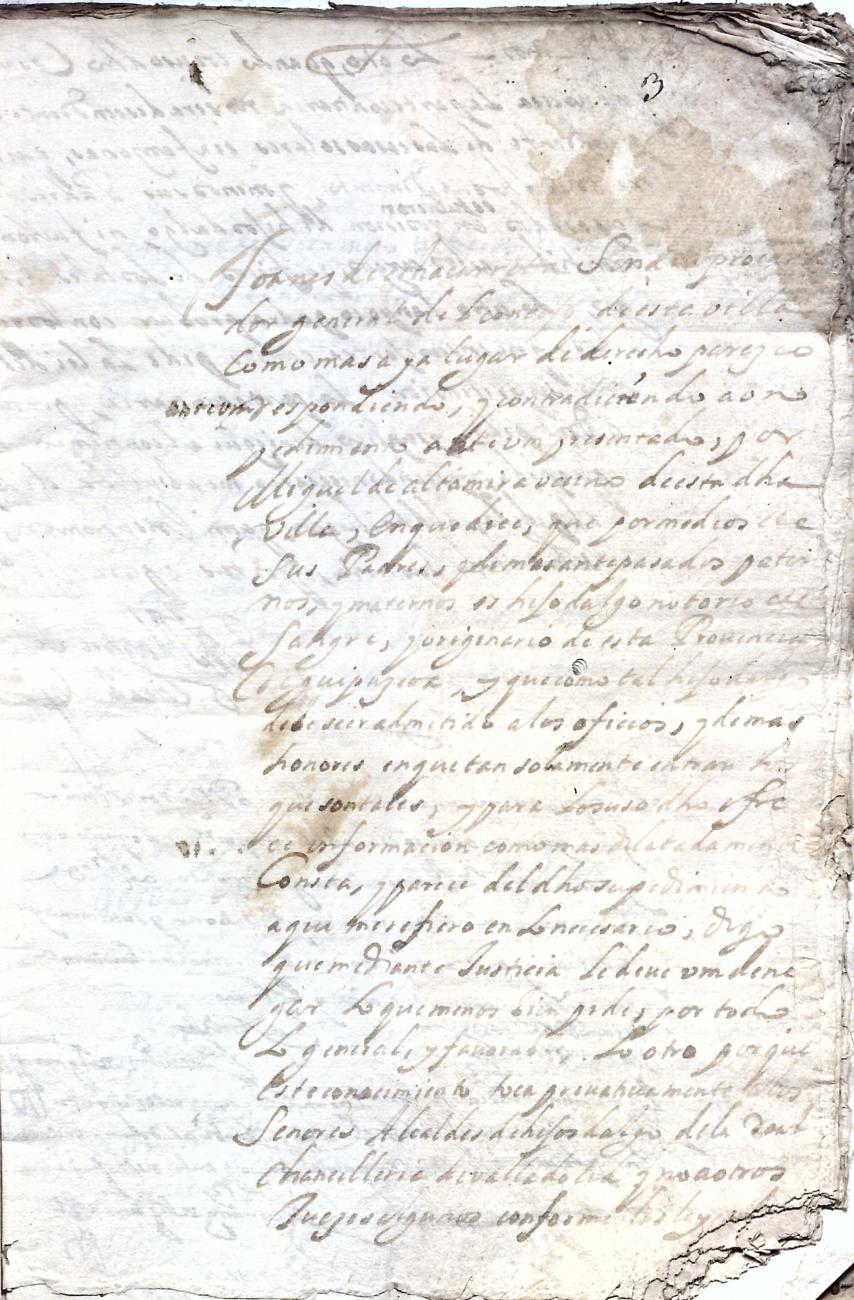 3
Joanes de Sindi procu
dor general de esta villa
Como mas aya lugar de derecho parezco
respondiendo, y contradiciendo a on
pedimiento ante vm presentado, por
Miguel de altamira vecino de esta dha
Villa, En que dice, que por medios de
Sus Padres, y demas antepasados pater
nos, y maternos es hijodalgo notorio de
Sangre, y originario de esta Provincia
De guipuzcoa, y que como tal hijodalgo
debe ser admitido a los oficios, y demas
honores en que tan solamente entran
que son tales, y para lo suso dho ofre
ce informacion como mas dilatadamente
Consta, y parece del dho su pedimiento
a que me refiero en lo necesario, digo
que mediante Justicia se deve vm dene
gar lo que menos bien pide, por todo
lo general, y favorable, lo otro porque
Este conocimiento toca privativamente a los
Señores Alcaldes de hijosdalgo de la Real
Chancilleria de valladolid y no a otros
Juezes algunos conforme